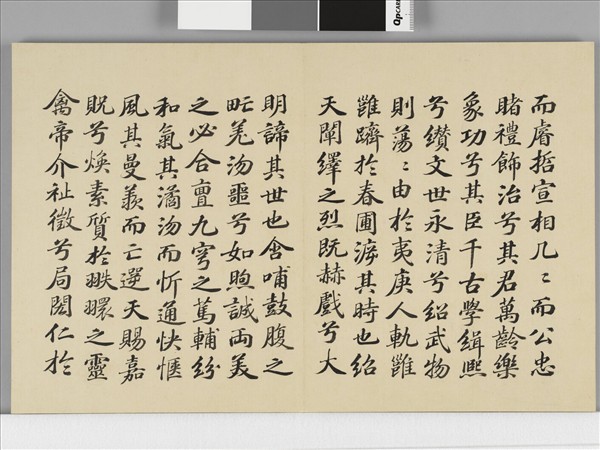 而睿哲宣相几〻而公忠
睹禮飾治兮其君萬齡樂
象功兮其臣千古學緝熙
兮纘文世永清兮紹武物
則蕩〻由於夷庚人軌
躋於春圃游其時也紹
天闡繹之烈既赫戲兮大
明諦其世也含哺鼓腹之
甿羌沕噩兮如煦誠両美
之必合亶九穹之篤輔紛
和氣其潏沕而忻通快愜
風其曼羨而亡遻天賜嘉
貺兮煥素質於翾之靈
禽帝介祉徵兮局闓仁於
QpCARD